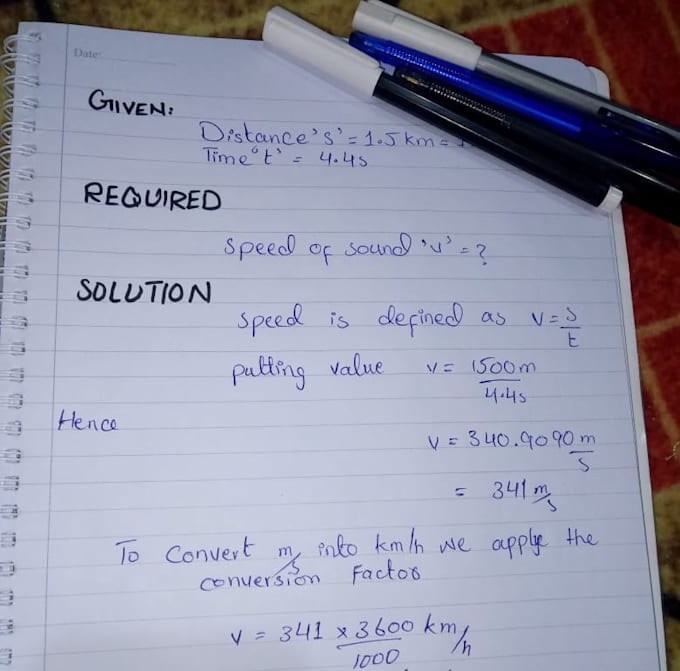 Date:
GIVEN:
Distance 's' = 1.5 km =
Time 't' = 4.4s
REQUIRED
speed of sound 'v' = ?
SOLUTION
speed is defined as v = s/t
putting value v = 1500m/4.4s
Hence
v = 340.9090 m/s
= 341 m/s
To convert m/s into km/h we applye the
conversion Factor
v = 341 x 3600/1000 km/h